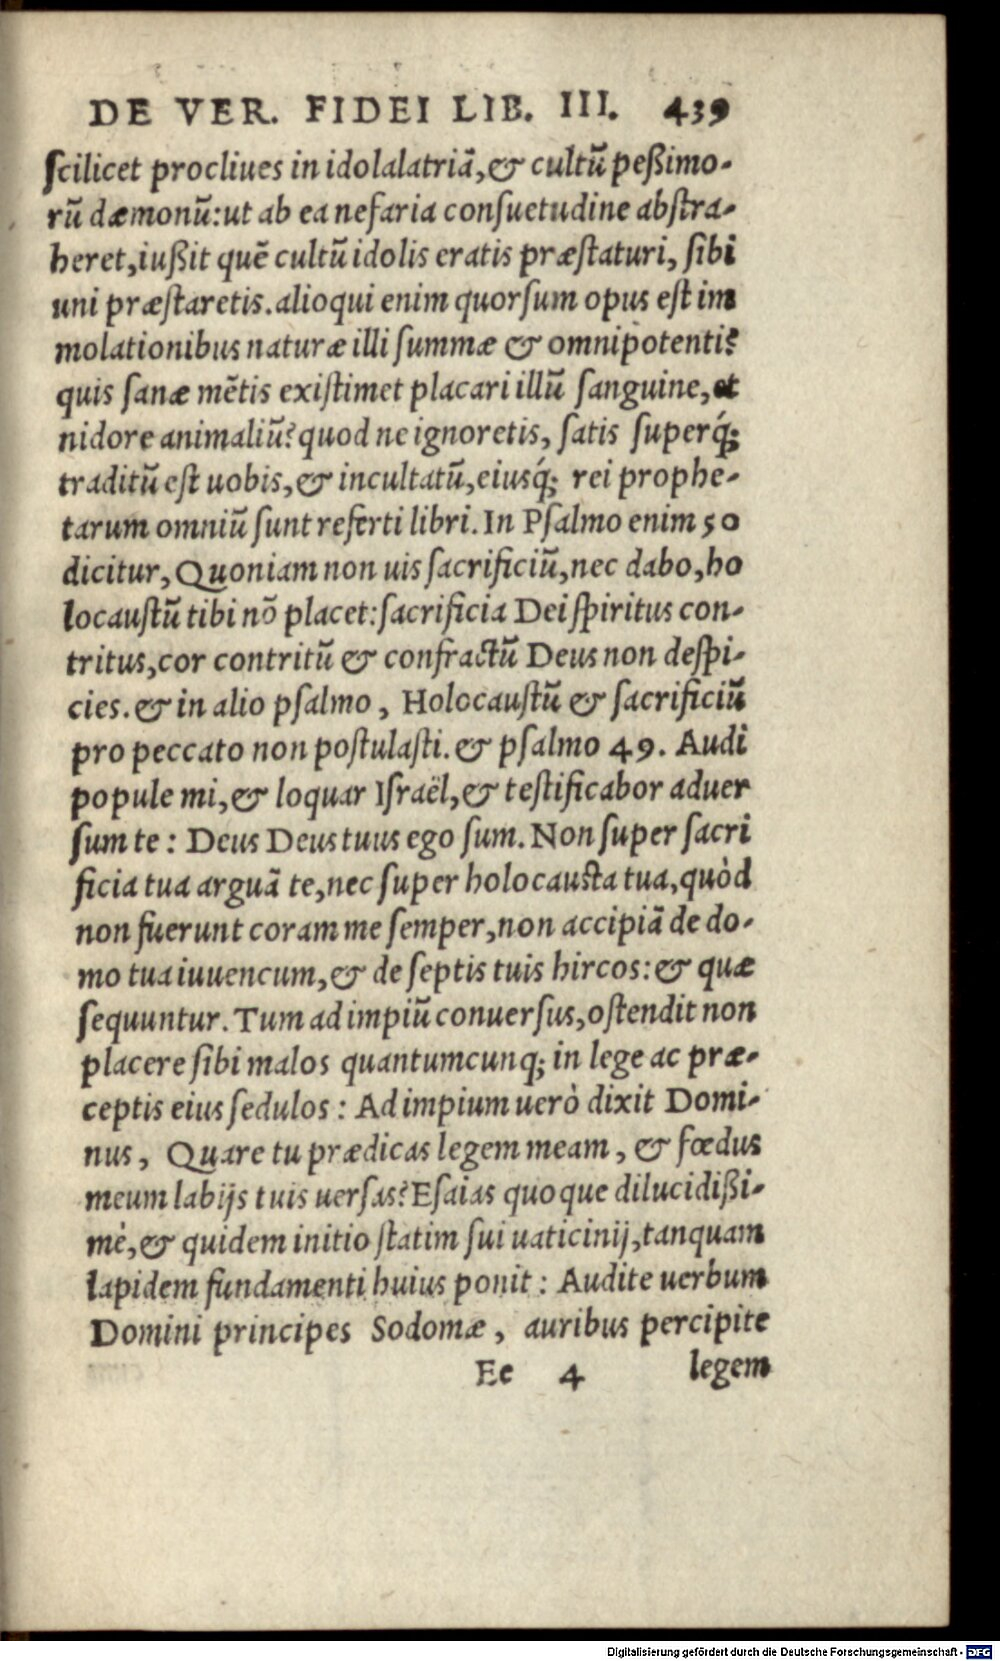 DE VER. FIDEI LIB. III. 439
scilicet procliues in idolalatriā,& cultū peßimo-
rū dæmonū:ut ab ea nefaria consuetudine abstra-
heret,iußit quē cultū idolis eratis præstaturi, sibi
uni præstaretis.alioqui enim quorsum opus est im
molationibus naturæ illi summæ & omnipotenti?
quis sanæ mētis existimet placari illū sanguine,et
nidore animaliū?quod ne ignoretis, satis superq́;
traditū est uobis,& incultatū,eiusq́; rei prophe-
tarum omniū sunt referti libri.In Psalmo enim 50
dicitur,Quoniam non uis sacrificiū,nec dabo,ho
locaustū tibi nō placet:sacrificia Dei spiritus con-
tritus,cor contritū & confractū Deus non despi-
cies.& in alio psalmo, Holocaustū & sacrificiū
pro peccato non postulasti.& psalmo 49. Audi
popule mi,& loquar Israël,& testificabor aduer
sum te: Deus Deus tuus ego sum.Non super sacri
ficia tua arguā te,nec super holocausta tua,quòd
non fuerunt coram me semper,non accipiā de do-
mo tua iuuencum,& de septis tuis hircos:& quæ
sequuntur.Tum ad impiū conuersus,ostendit non
placere sibi malos quantumcunq; in lege ac præ-
ceptis eius sedulos: Ad impium uerò dixit Domi-
nus, Quare tu prædicas legem meam, & fœdus
meum labijs tuis uersas?Esaias quoque dilucidißi-
mè,& quidem initio statim sui uaticinij,tanquam
lapidem fundamenti huius ponit: Audite uerbum
Domini principes Sodomæ, auribus percipite
Ee 4 legem
Digitalisierung gefördert durch die Deutsche Forschungsgemeinschaft - DFG